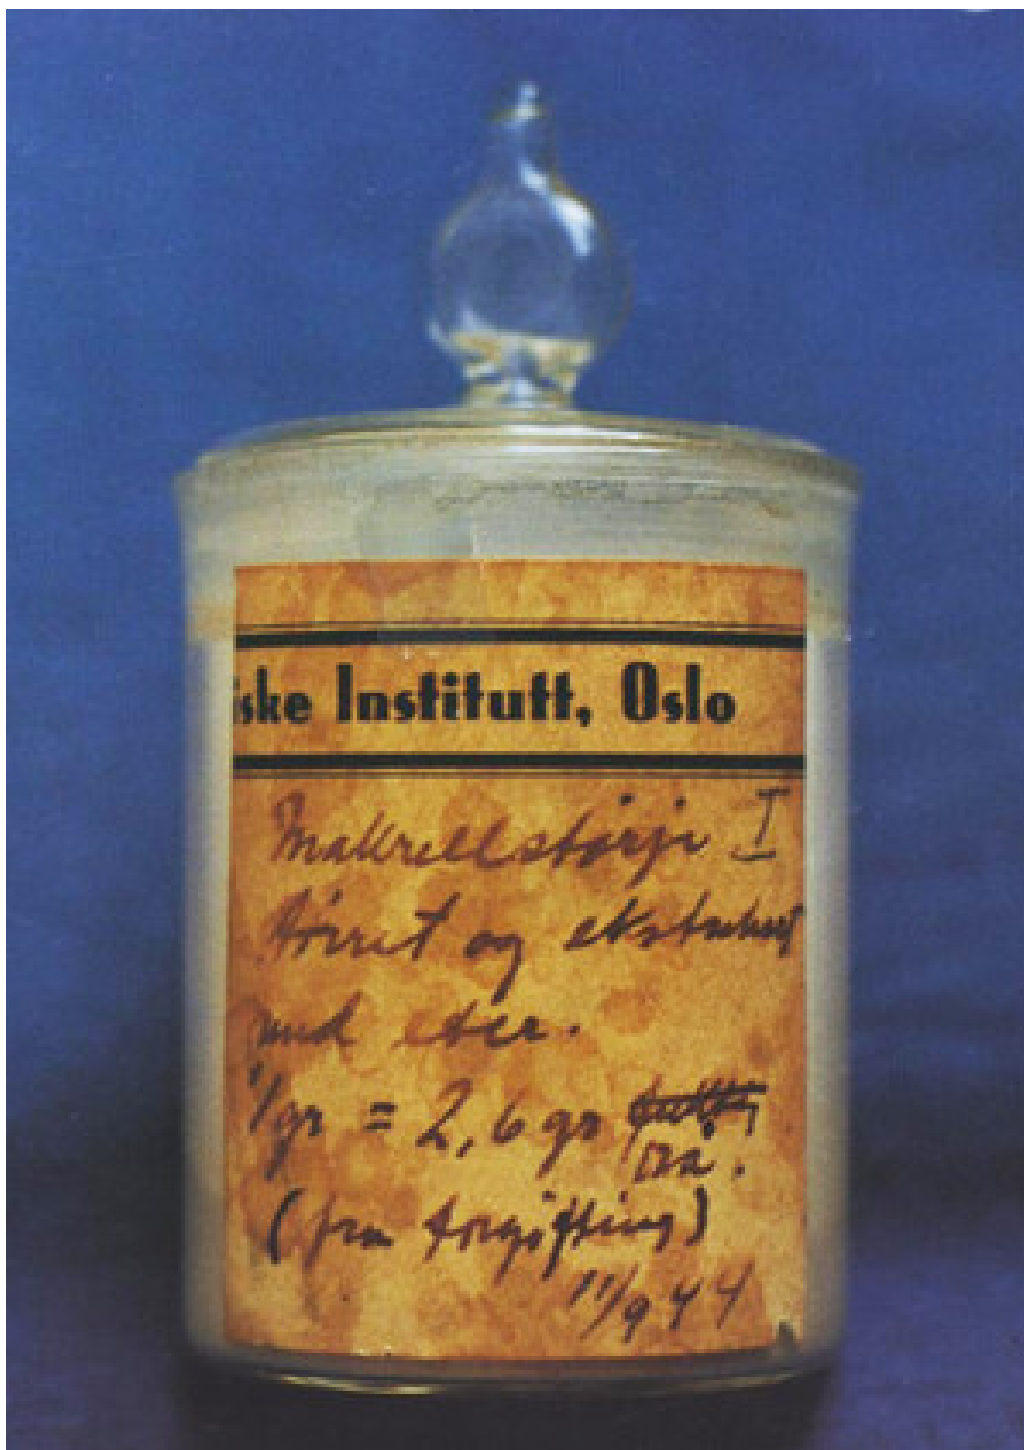 iske Institutt, Oslo
Makrellstørje I
tørret og ekstrahert
med eter.
1 gr = 2,6 gr
rå.
(fra forgiftning)
11/9 44